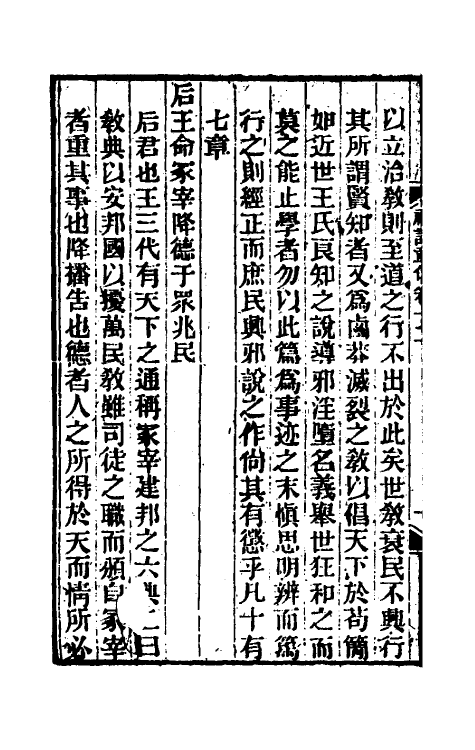 以立治教則至道之行不出於此矣世教衰民不興行
其所謂賢知者又為鹵莽滅裂之教以倡天下於苟簡
如近世王氏良知之說導邪淫墮名義舉世狂和之而
莫之能止學者勿以此篇為事迹之末慎思明辨而篤
行之則經正而庶民興邪說之作尚其有懲乎凡十有
七章
后王命冢宰降德于眾兆民
后君也王三代有天下之通稱冢宰建邦之六典二曰
教典以安邦國以擾萬民教雖司徒之職而頒自冢宰
者重其事也降播告也德者人之所得於天而情所必